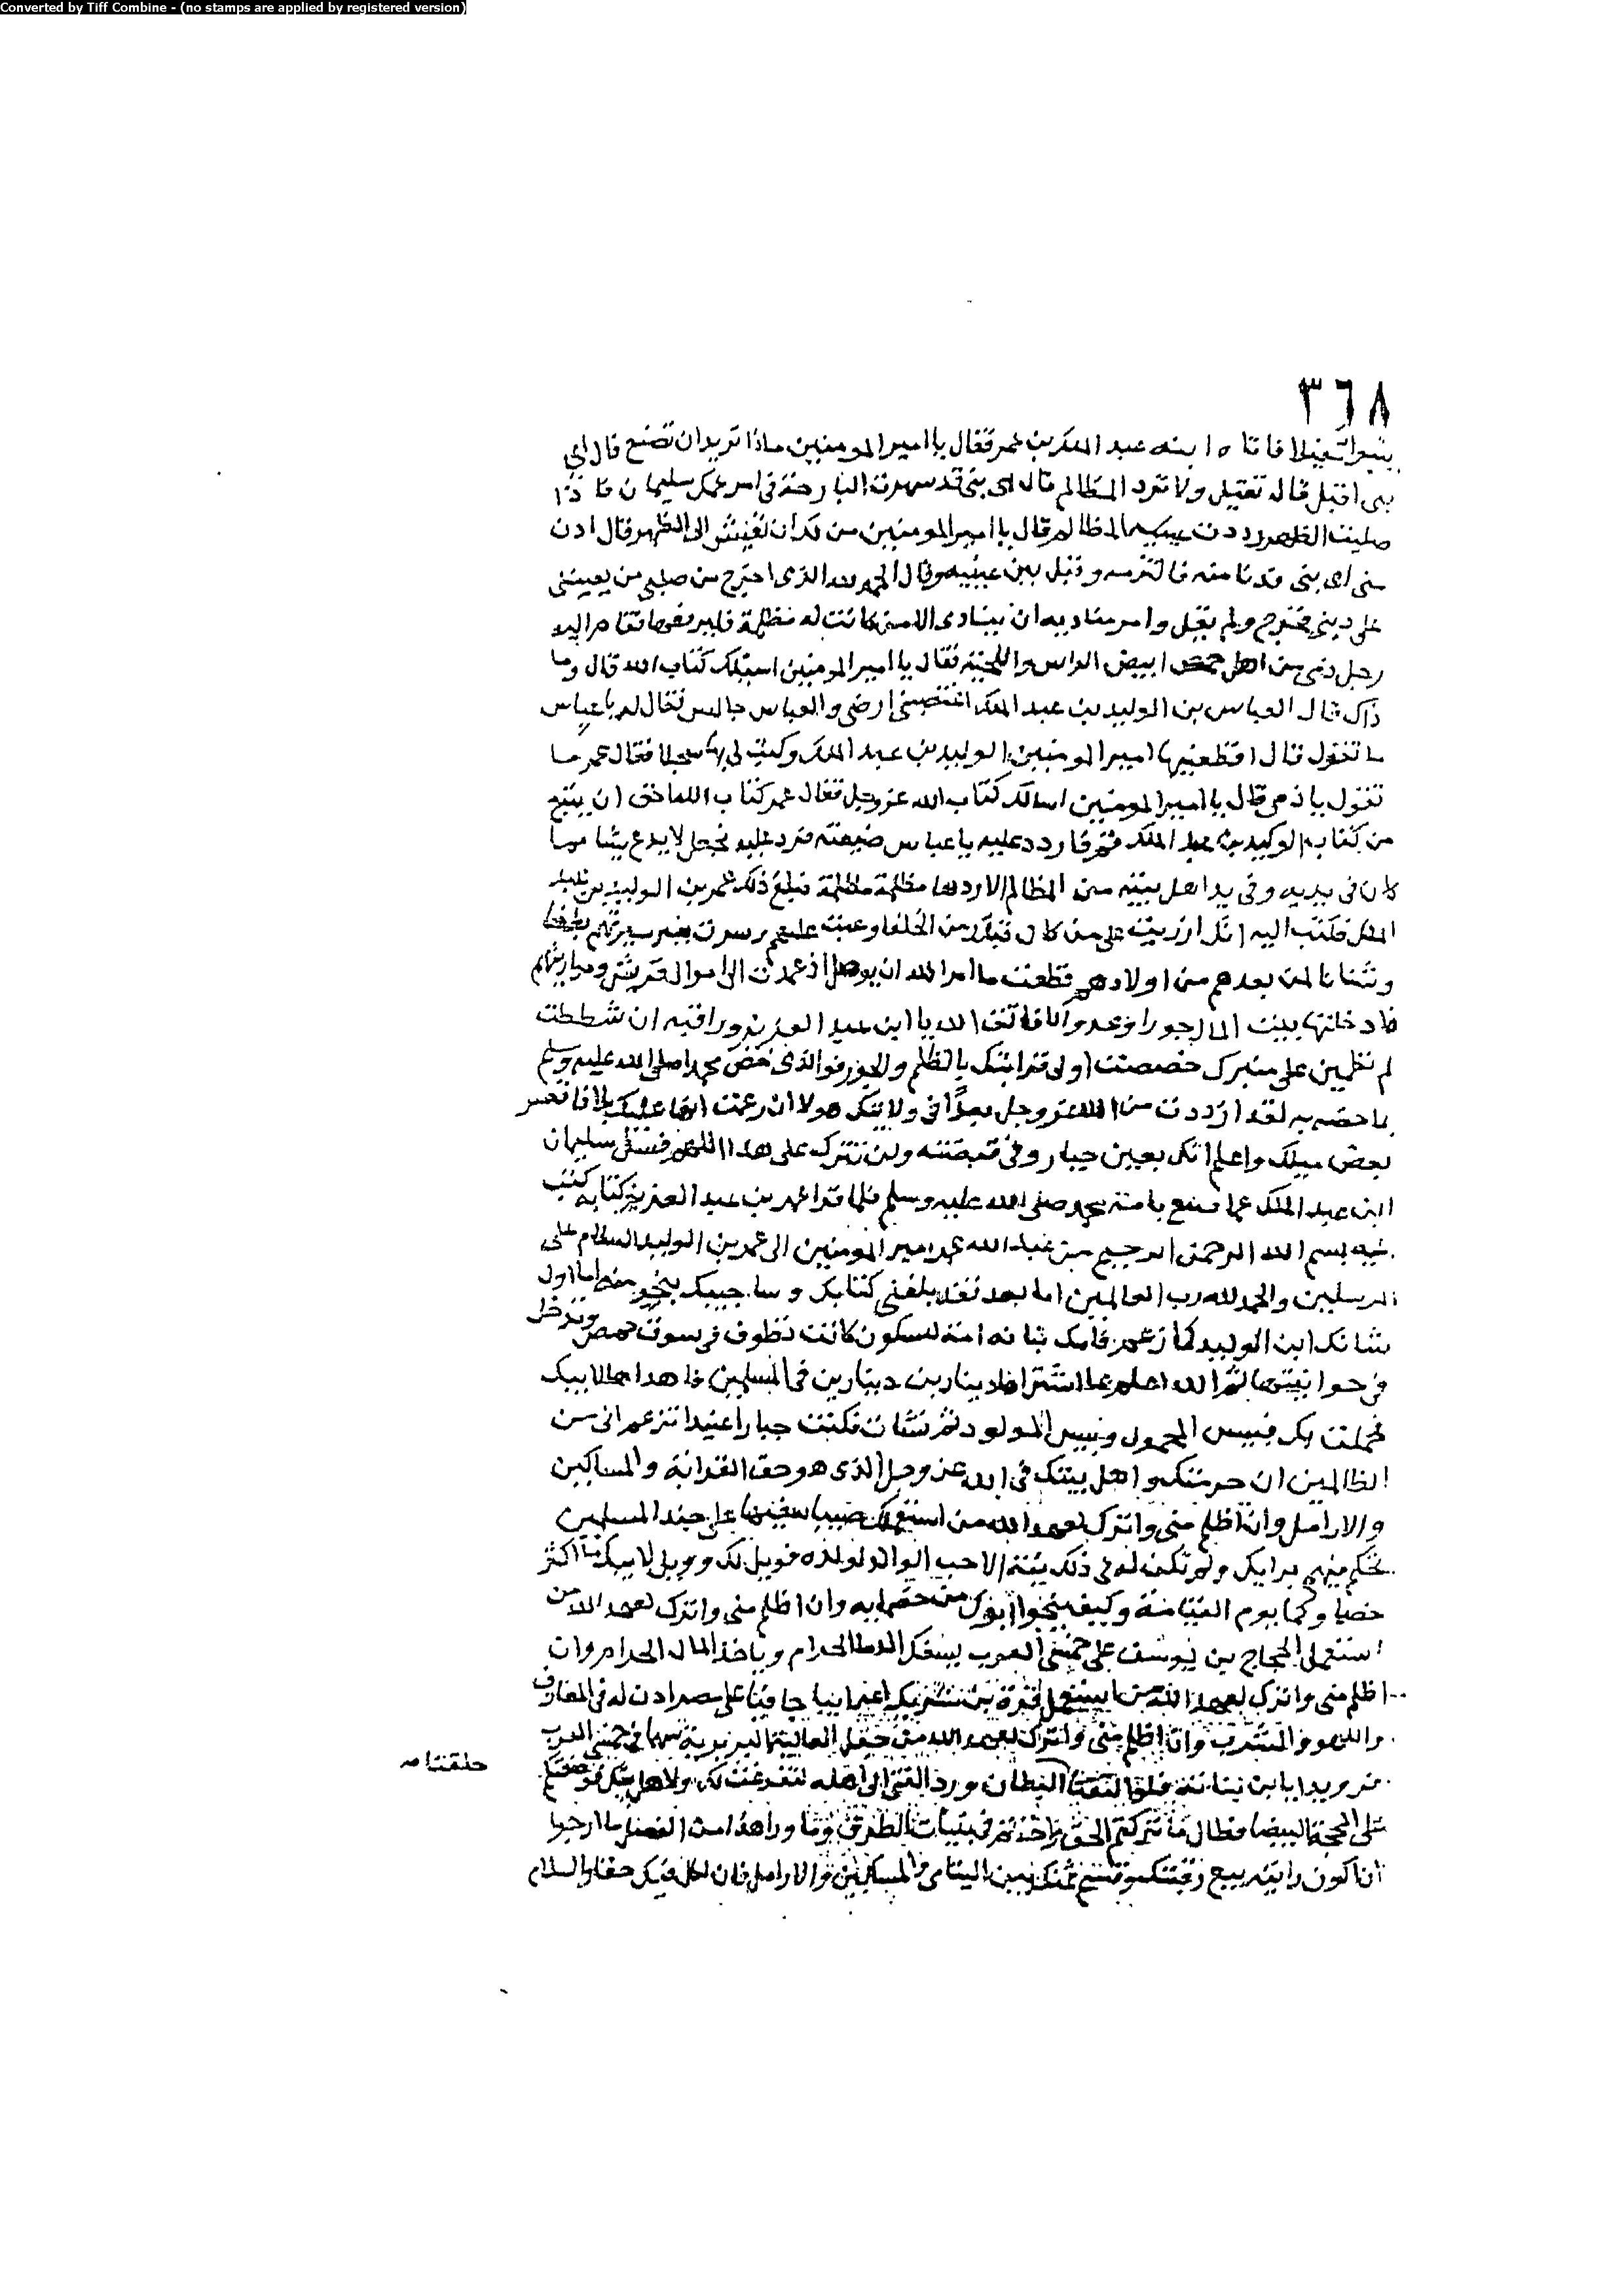 Converted by Tiff Combine - (no stamps are applied by registered version)
٣٦٨
فاتاه ابنه عبد الملك بن عمر فقال يا امير المومنين ماذا تريد ان تصنع قال اي
بني اقيل قال تقيل ولا ترد المظالم قال اي بني قد سهرت البارحة في امر عمك سليمان فاذا
صليت الظهر رددت المظالم قال يا امير المومنين من لك ان تعيش الى الظهر قال ادن
مني اي بني فدنا منه فالتزمه وقبل بين عينيه وقال الحمد لله الذي اخرج من صلبي من يعينني
على ديني فخرج ولم يقل وامر مناديه ان ينادي الا من كانت له مظلمة فليرفعها فقام اليه
رجل ذمي من اهل حمص ابيض الراس واللحية فقال يا امير المومنين اسيلك كتاب الله قال وما
ذاك قال العباس بن الوليد بن عبد الملك اغتصبني ارضي والعباس جالس فقال له يا عباس
ما تقول قال اقطعنيها امير المومنين الوليد بن عبد الملك وكتب لي بها سجلا فقال عمر ما
تقول يا ذمي قال يا امير المومنين اسالك كتاب الله عز وجل فقال عمر كتاب الله احق ان يتبع
من كتاب الوليد بن عبد الملك قم فاردد عليه يا عباس ضيعته فرد عليه فجعل لا يدع شيا مما
كان في يديه وفي يد اهل بيته من المظالم الا ردها مظلمة مظلمة فبلغ ذلك عمر بن الوليد بن عبد
الملك فكتب اليه انك ازريت على من كان قبلك من الخلفا وعبت عليهم وسرت بغير سيرتهم بغضا
وشنانا لمن بعدهم من اولادهم قطعت ما امر الله ان يوصل اذ عمدت الى اموال قريش ومواريثهم
فادخلتها بيت المال جورا وعدوانا فاتق الله يا ابن عبد العزيز وراقبه ان شططت
لم تطمين على منبرك خصصت اولي قرابتك بالظلم والجور فوالذي خص محمدا صلى الله عليه وسلم
بما خصه به لقد ازددت من الله عز وجل بعدا في ولايتك هذه ان زعمت انها عليك بلا فاقصر
بعض ميلك واعلم انك بعين جبار وفي قبضته ولن تترك على هذا اللهم فسل سليمان
ابن عبد الملك عما صنع بامة محمد صلى الله عليه وسلم فلما قرا عمر بن عبد العزيز كتابه كتب
اليه بسم الله الرحمن الرحيم من عبد الله عمر امير المومنين الى عمر بن الوليد السلام على
المرسلين والحمد لله رب العالمين اما بعد فقد بلغني كتابك وساجيبك بنحو منه اما اول
شانك ابن الوليد كما زعم فامك بنانه امة السكون كانت تطوف في سوق حمص وتدخل
في حوانيتها ثم الله اعلم بها اشتراها دينار بن دينار من في المسلمين فاهداها لابيك
فحملت بك فبيس المحمول وبيس المولود ثم نشات فكنت جبارا عنيدا تزعم اني من
الظالمين ان حرمتك واهل بيتك في الله عز وجل الذي هو حق القرابة والمساكين
والارامل وان اظلم مني واترك لعهد الله من استعملك صبيا سفيها على جند المسلمين
تحكم فيهم برايك ولم تكن له في ذلك نية الا حب الوالد لولده فويل لك وويل لابيك ما اكثر
خصماوكما يوم القيامة وكيف ينجوا ابوك من خصمايه وان اظلم مني واترك لعهد الله من
استعمل الحجاج بن يوسف على خمسي العرب يسفك الدم الحرام وياخذ المال الحرام وان
اظلم مني واترك لعهد الله من استعمل قرة بن شريك اعرابيا جافيا على مصر اذن له في المعازف
واللهو والشرب وان اظلم مني واترك لعهد الله من جعل لعالية البربرية سهما في خمس العرب
فرويدا يا ابن بنانه فلو التقتا حلقتا البطان ورد الفي الى اهله لتفرغت لك ولاهل بيتك فوضعتكم
على المحجة البيضا فطال ما تركتم الحق واخذتم في بنيات الطريق وما ورا هذا من الفضل ما ارجوا
ان اكون رايته بيع رقبتك وقسم ثمنك بين اليتامى والمساكين والارامل فان لكل فيك حقا والسلام
حلقتا صح